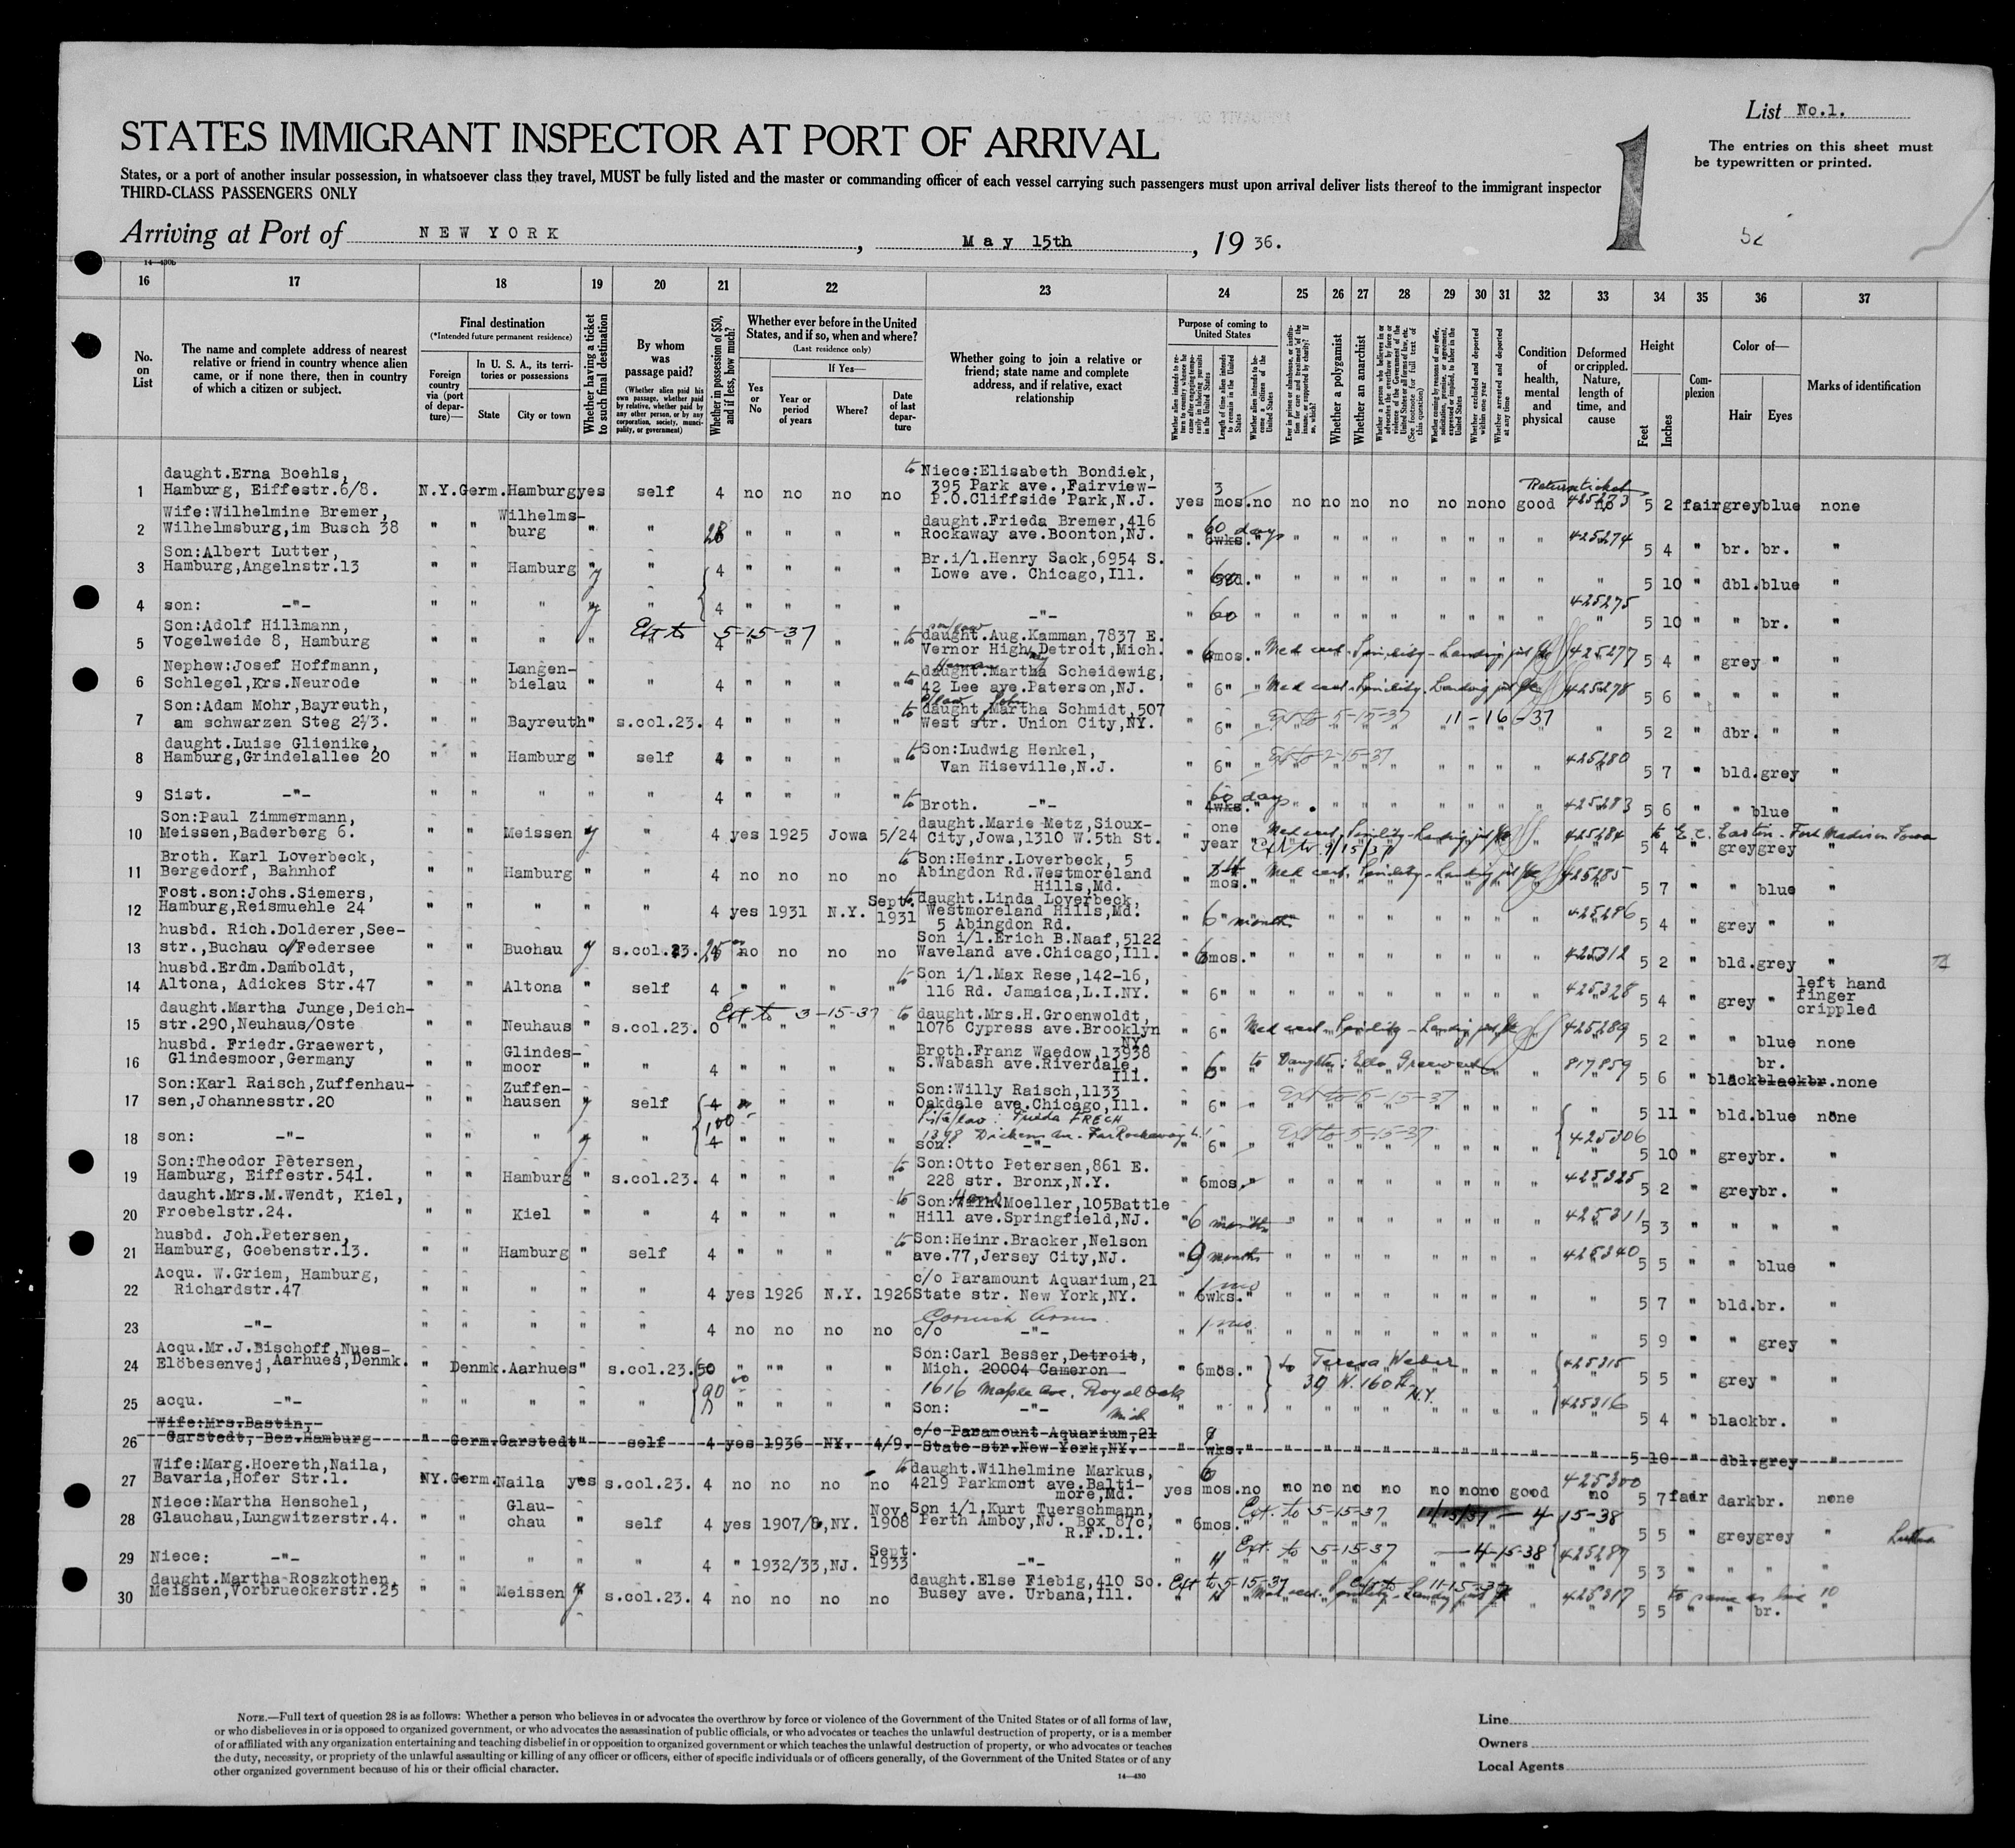 List No.1.
STATES IMMIGRANT INSPECTOR AT PORT OF ARRIVAL
The entries on this sheet must
be typewritten or printed.
States, or a port of another insular possession, in whatsoever class they travel, MUST be fully listed and the master or commanding officer of each vessel carrying such passengers must upon arrival deliver lists thereof to the immigrant inspector
THIRD-CLASS PASSENGERS ONLY
1
52
Arriving at Port of NEW YORK, May 15th, 19 36.
14—430b
16 17 18 19 20 21 22 23 24 25 26 27 28 29 30 31 32 33 34 35 36 37
No. on List
The name and complete address of nearest relative or friend in country whence alien came, or if none there, then in country of which a citizen or subject.
Final destination
(*Intended future permanent residence)
Foreign country via (port of departure)—
In U. S. A., its territories or possessions
State
City or town
Whether having a ticket to such final destination
By whom was passage paid?
(Whether alien paid his own passage, whether paid by relative, whether paid by any other person, or by any corporation, society, municipality, or government)
Whether in possession of $50, and if less, how much?
Whether ever before in the United States, and if so, when and where?
(Last residence only)
Yes or No
If Yes—
Year or period of years
Where?
Date of last departure
Whether going to join a relative or friend; state name and complete address, and if relative, exact relationship
Purpose of coming to United States
Whether alien intends to return to country whence he came after engaging temporarily in laboring pursuits in the United States
Length of time alien intends to remain in the United States
Whether alien intends to become a citizen of the United States
Ever in prison or almshouse, or institution for care and treatment of the insane, or supported by charity? If so, which?
Whether a polygamist
Whether an anarchist
Whether a person who believes in or advocates the overthrow by force or violence of the Government of the United States or all forms of law, etc. (See footnote for full text of this question)
Whether coming by reason of any offer, solicitation, promise, or agreement, expressed or implied, to labor in the United States
Whether excluded and deported within one year
Whether arrested and deported at any time
Condition of health, mental and physical
Deformed or crippled. Nature, length of time, and cause
Height
Feet
Inches
Complexion
Color of—
Hair
Eyes
Marks of identification
1 daught.Erna Boehls, Hamburg, Eiffestr.6/8. N.Y. Germ. Hamburg yes self 4 no no no no to Niece:Elisabeth Bondiek, 395 Park ave.,Fairview- P.O.Cliffside Park,N.J. yes 3 mos. no no no no no no no no good Return ticket 425273 no 5 2 fair grey blue none
2 Wife:Wilhelmine Bremer, Wilhelmsburg,im Busch 38 " " Wilhelms- burg " " " " " " daught.Frieda Bremer,416 Rockaway ave.Boonton,NJ. " 60 days 6wks. " " " " " " " " " 425274 5 4 " br. br. "
3 Son:Albert Lutter, Hamburg,Angelnstr.13 " " Hamburg y " 4 " " " " Br.i/l.Henry Sack,6954 S. Lowe ave. Chicago,Ill. " " " " " " " " " " " " 5 10 " dbl. blue "
4 son: -"- " " " y " 4 " " " " -"- " 60 " " " " " " " " " 425275 " 5 10 " " br. "
5 Son:Adolf Hillmann, Vogelweide 8, Hamburg " " " " Ext to 5-15-37 4 " " " " to son/law daught.Aug.Kamman,7837 E. Vernor High Detroit,Mich. " 6mos. " Med cert. Senility - Landing 425277 5 4 " grey " "
6 Nephew:Josef Hoffmann, Schlegel,Krs.Neurode " " Langen- bielau " " 4 " " " " to daught.Martha Scheidewig, 42 Lee ave.Paterson,NJ. " 6" " Med cert. Senility - Landing 425278 5 6 " " " "
7 Son:Adam Mohr,Bayreuth, am schwarzen Steg 2⅓. " " Bayreuth " s.col.23. 4 " " " " to daught.Martha Schmidt,507 West str. Union City,NY. " 6" Ext to 5-15-37 11-16-37 " " 5 2 " dbr. " "
8 daught.Luise Glienike, Hamburg,Grindelallee 20 " " Hamburg " self 4 " " " " to Son:Ludwig Henkel, Van Hiseville,N.J. " 6" Ext to 2-15-37 " " 425280 5 7 " bld. grey "
9 Sist. -"- " " " " " 4 " " " " to Broth. -"- " 60 days 4wks. " " " " " " " " " 425283 5 6 " " blue "
10 Son:Paul Zimmermann, Meissen,Baderberg 6. " " Meissen y " 4 yes 1925 Jowa 5/24 daught.Marie Metz,Sioux- City,Jowa,1310 W.5th St. " one year " Med cert. Senility - Landing Ext to 9/15/37 " 425284 to E.C. Easton - Fort Madison Iowa 5 4 " grey grey "
11 Broth. Karl Loverbeck, Bergedorf, Bahnhof " " Hamburg " " 4 no no no no to Son:Heinr.Loverbeck, 5 Abingdon Rd.Westmoreland Hills,Md. " mos. " Med cert. Senility - Landing 425285 5 7 " " blue "
12 Fost.son:Johs.Siemers, Hamburg,Reismuehle 24 " " " " " 4 yes 1931 N.Y. Sept. 1931 to daught.Linda Loverbeck, Westmoreland Hills,Md. 5 Abingdon Rd. " 6 months " " " " " " " " 425286 5 4 " grey " "
13 husbd. Rich.Dolderer,See- str.,Buchau o/Federsee " " Buchau y s.col.23. no no no no Son i/l.Erich B.Naaf,5122 Waveland ave.Chicago,Ill. " 6mos. " " " " " " " " " 425312 5 2 " bld. grey "
14 husbd.Erdm.Damboldt, Altona, Adickes Str.47 " " Altona " self 4 " " " " to Son i/l.Max Rese,142-16, 116 Rd. Jamaica,L.I.NY. " 6" " " " " " " " " " 425328 5 4 " grey " left hand finger crippled
15 daught.Martha Junge,Deich- str.290,Neuhaus/Oste " " Neuhaus " s.col.23. 0 Ext to 3-15-37 " " " " to daught.Mrs.H.Groenwoldt, 1076 Cypress ave.Brooklyn NY. " 6" Med cert - Senility - Landing 425289 5 2 " " blue none
16 husbd. Friedr.Graewert, Glindesmoor,Germany " " Glindes- moor " " 4 " " " " Broth.Franz Waedow,13938 S.Wabash ave.Riverdale, Ill. " 6 to Daughter: Ella Graewert 817859 5 6 " black black br. br. none
17 Son:Karl Raisch,Zuffenhau- sen,Johannesstr.20 " " Zuffen- hausen y self 4 " " " " Son:Willy Raisch,1133 Oakdale ave.Chicago,Ill. " 6" Ext to 5-15-37 " " " 5 11 " bld. blue none
Sis/law: Frieda FRECH
1398 Dickens Av. - Far Rockaway
18 son: -"- " " " y " 100 4 " " " " son: -"- " 6" Ext to 5-15-37 " " 425306 5 10 " grey br. "
19 Son:Theodor Petersen, Hamburg, Eiffestr.541. " " Hamburg " s.col.23. 4 " " " " to Son:Otto Petersen,861 E. 228 str. Bronx,N.Y. " 6mos. " " " " " " " " " 425325 5 2 " grey br. "
20 daught.Mrs.M.Wendt, Kiel, Froebelstr.24. " " Kiel " " 4 " " " " to Son: Moeller,105Battle Hill ave.Springfield,NJ. " 6 months " " " " " " " " 425311 5 3 " " " "
21 husbd. Joh.Petersen, Hamburg, Goebenstr.13. " " Hamburg " self 4 " " " " to Son:Heinr.Bracker,Nelson ave.77,Jersey City,NJ. " 9 months " " " " " " " " 425340 5 5 " " blue "
22 Acqu. W.Griem, Hamburg, Richardstr.47 " " " " " 4 yes 1926 N.Y. 1926 c/o Paramount Aquarium,21 State str. New York,NY. " 1 mo 6wks. " " " " " " " " " " 5 7 " bld. br. "
23 -"- " " " " " 4 no no no no Cornish Arms c/o -"- " 1 mo. " " " " " " " " " " 5 9 " " grey "
24 Acqu.Mr.J.Bischoff,Nues- Elöbesenvej,Aarhues,Denmk. " Denmk. Aarhues " s.col.23. 50 " "" " " Son:Carl Besser,Detroit, Mich. 20004 Cameron " 6mos. " to Teresa Weber " " " 425315 5 5 " grey " "
1616 Maple Ave. Royal Oak Mich
25 acqu. -"- " " " " " 90 " " " " Son: -"- " " " 30 W. 160 St. N.Y. " " " 425316 5 4 " black br. "
26 Wife:Mrs.Bastin, Garstedt, Bez.Hamburg " Germ. Garstedt " self 4 yes 1936 NY. 4/9. c/o Paramount Aquarium,21 State str.New York,NY. " wks. " " " " " " " " " " 5 10 " dbl. grey "
27 Wife:Marg.Hoereth,Naila, Bavaria,Hofer Str.1. NY. Germ. Naila yes s.col.23. 4 no no no no to daught.Wilhelmine Markus, 4219 Parkmont ave.Balti- more,Md. yes 6 mos. no no no no no no no no good 425300 no 5 7 fair dark br. none
28 Niece:Martha Henschel, Glauchau,Lungwitzerstr.4. " " Glau- chau " self 4 yes 1907/8,NY. Nov. 1908 Son i/l,Kurt Tuerschmann, Perth Amboy,NJ. Box 87c, R.F.D.1. " 6mos. " Ext. to 5-15-37 11/15/37 — 4 15-38 5 5 " grey grey "
29 Niece: -"- " " " " " 4 " 1932/33,NJ. Sept. 1933 -"- " " Ext. to 5-15-37 — 4-15-38 425287 5 3 " " " "
30 daught.Martha Roszkothen, Meissen,Vorbrueckerstr.25 " " Meissen y s.col.23. 4 no no no no daught.Else Fiebig,410 So. Busey ave. Urbana,Ill. Ext to 5-15-37 Ext to 11-15-37 " Med cert. Senility - Landing 425317 to same as line 10 5 5 " " br. "
NOTE.—Full text of question 28 is as follows: Whether a person who believes in or advocates the overthrow by force or violence of the Government of the United States or of all forms of law,
or who disbelieves in or is opposed to organized government, or who advocates the assassination of public officials, or who advocates or teaches the unlawful destruction of property, or is a member
of or affiliated with any organization entertaining and teaching disbelief in or opposition to organized government or which teaches the unlawful destruction of property, or who advocates or teaches
the duty, necessity, or propriety of the unlawful assaulting or killing of any officer or officers, either of specific individuals or of officers generally, of the Government of the United States or of any
other organized government because of his or their official character.
14—430
Line
Owners
Local Agents